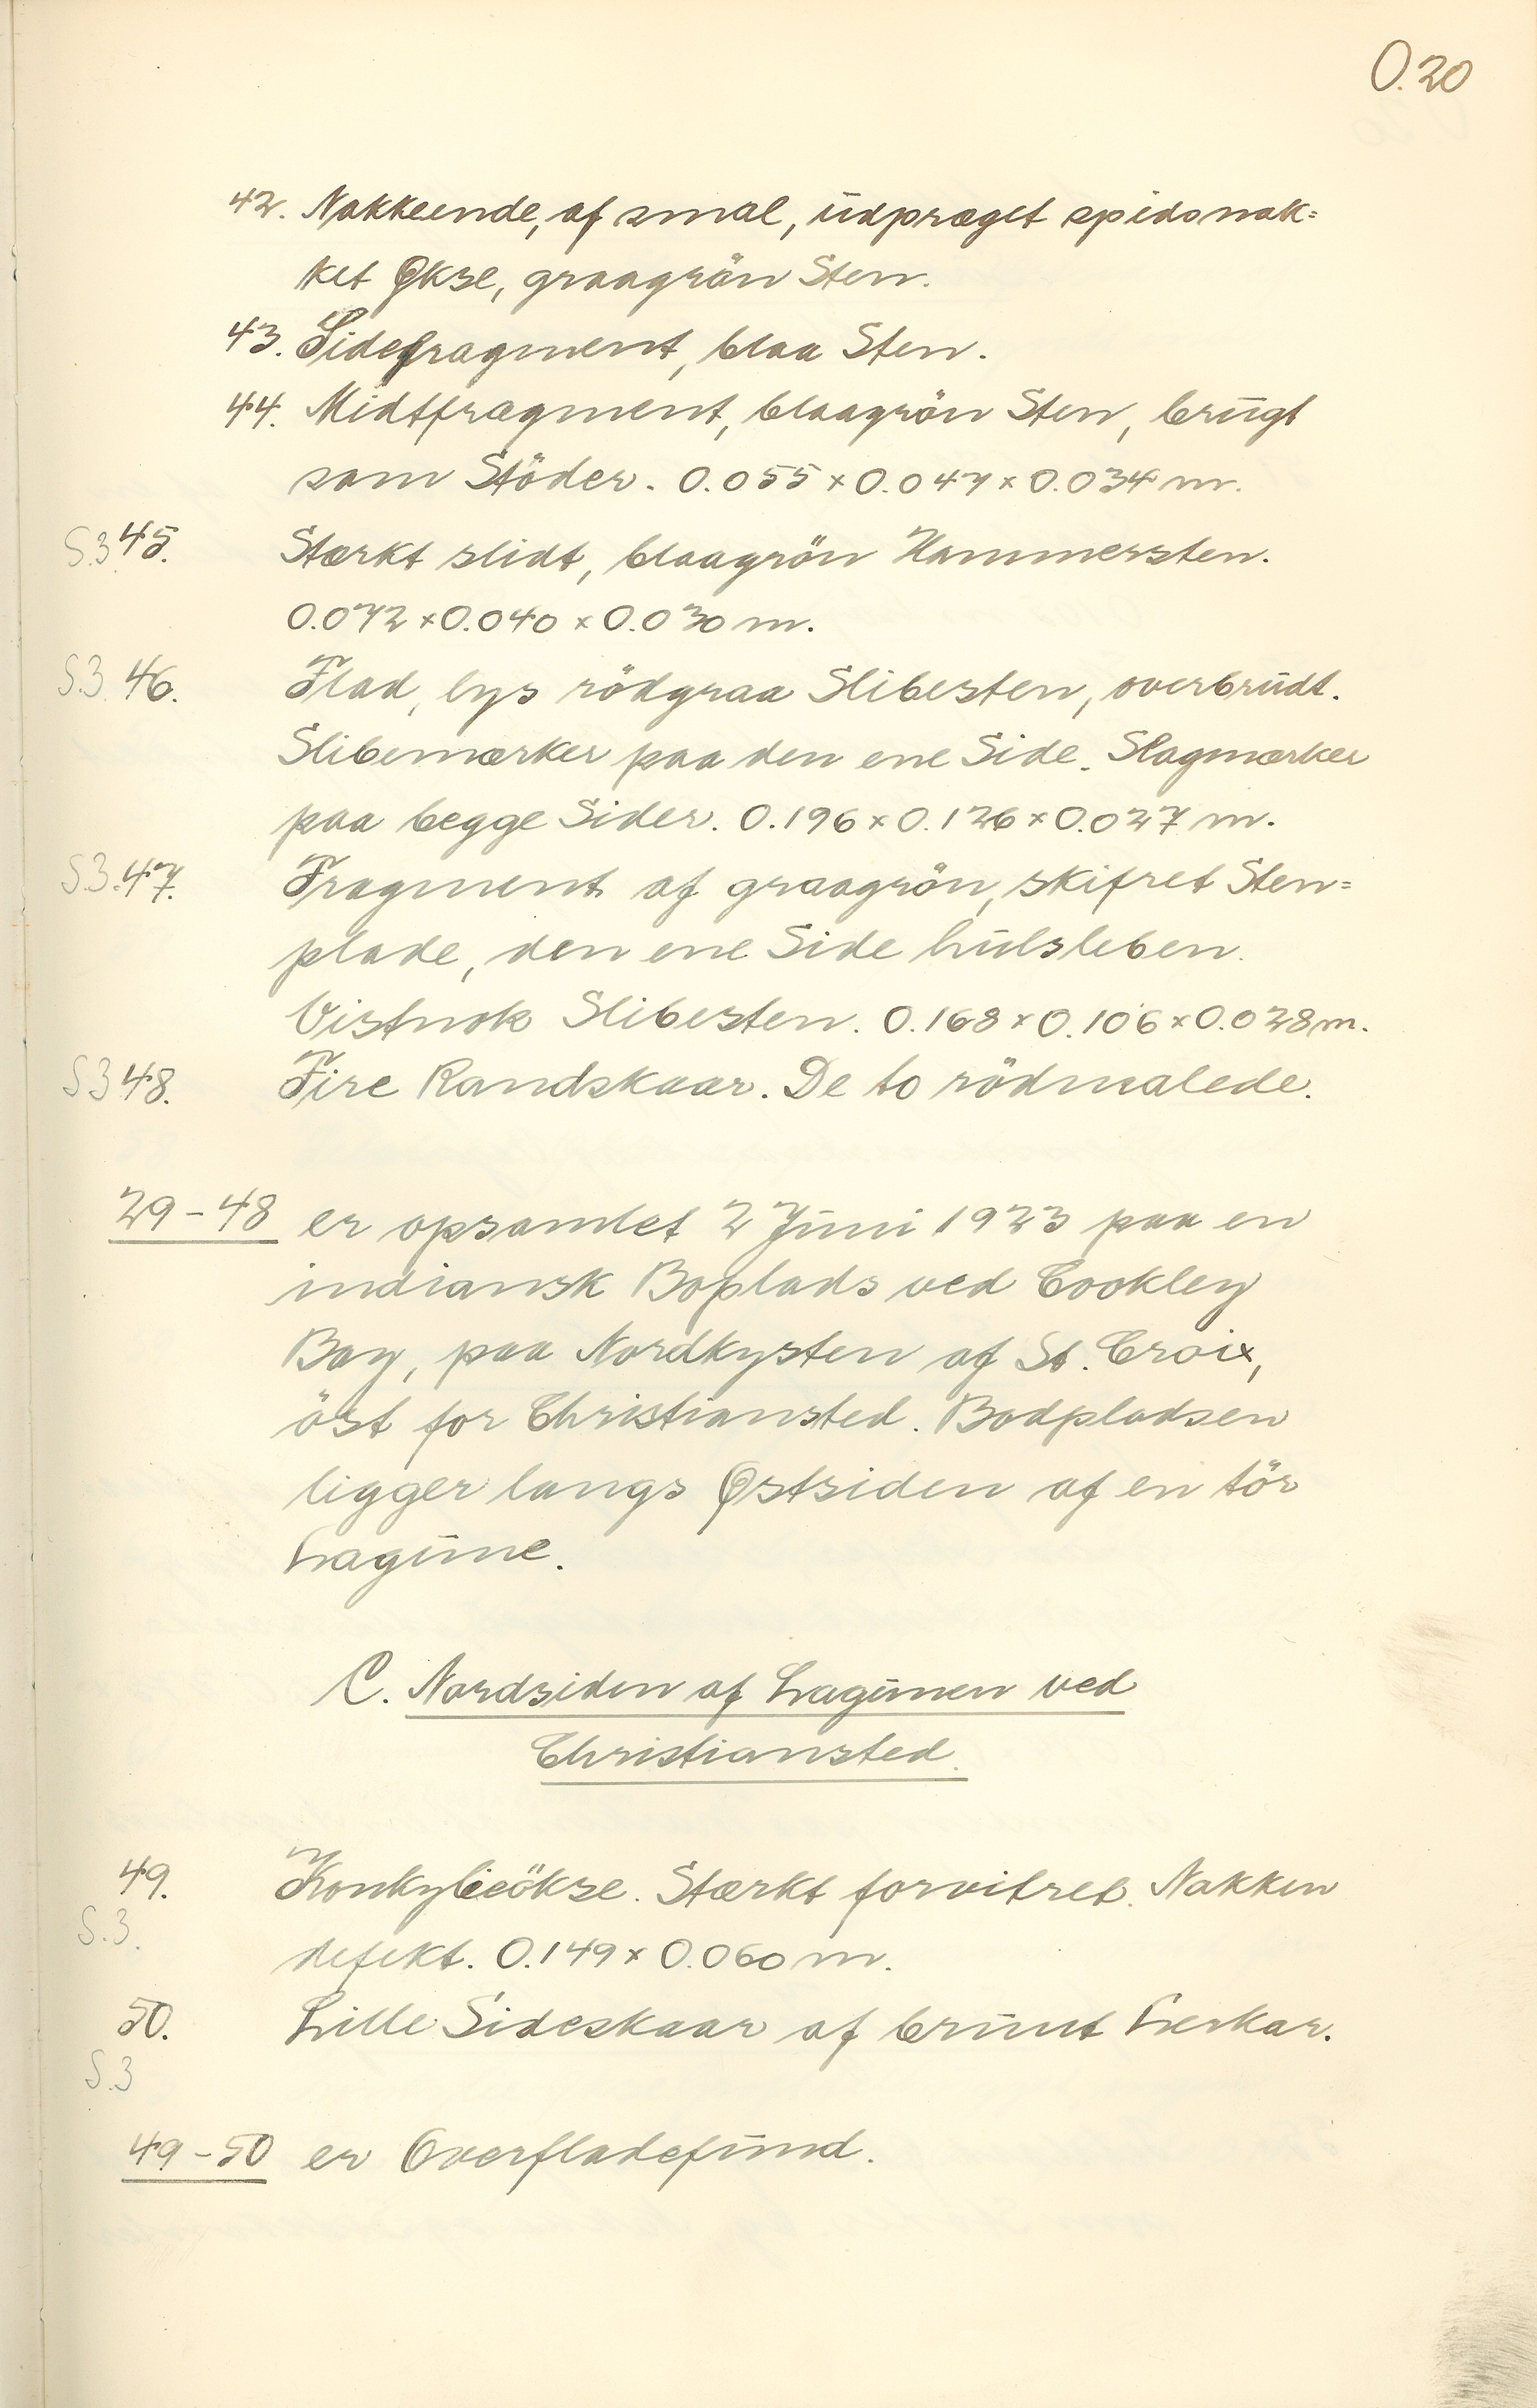 O.20
42. Nakkeende, af smal, udpræget spidsnak=
ket Økse, graagrön Sten.
43. Sidefragment, blaa Sten.
44. Midtfragment, blaagrön Sten, brugt
som Stöder. 0.055 × 0.047 × 0.034 m.
S.3 45. Stærkt slidt, blaagrön Hammersten.
0.072 × 0.040 × 0.030 m.
S.3. 46. Flad, lys rödgraa Slibesten, overbrudt.
Slibemærker paa den ene Side. Slagmærker
paa begge Sider. 0.196 × 0.126 × 0.027 m.
S.3. 47. Fragment af graagrön, skifret Sten=
plade, den ene Side hulsleben.
Vistnok Slibesten. 0.168 × 0.106 × 0.028 m.
S.3 48. Fire Randskaar. De to rödmalede.
29-48 er opsamlet 2 Juni 1923 paa en
indiansk Boplads ved Cookley
Bay, paa Nordkysten af St. Croix,
öst for Christiansted. Bodpladsen
ligger langs Østsiden af en tör
Lagune.
C. Nordsiden af Lagunen ved
Christiansted.
49. Konkylieökse. Stærkt forvitret. Nakken
S.3. defekt. 0.149 × 0.060 m.
50. Lille Sideskaar af brunt Lerkar.
S.3
49-50 er Overfladefund.